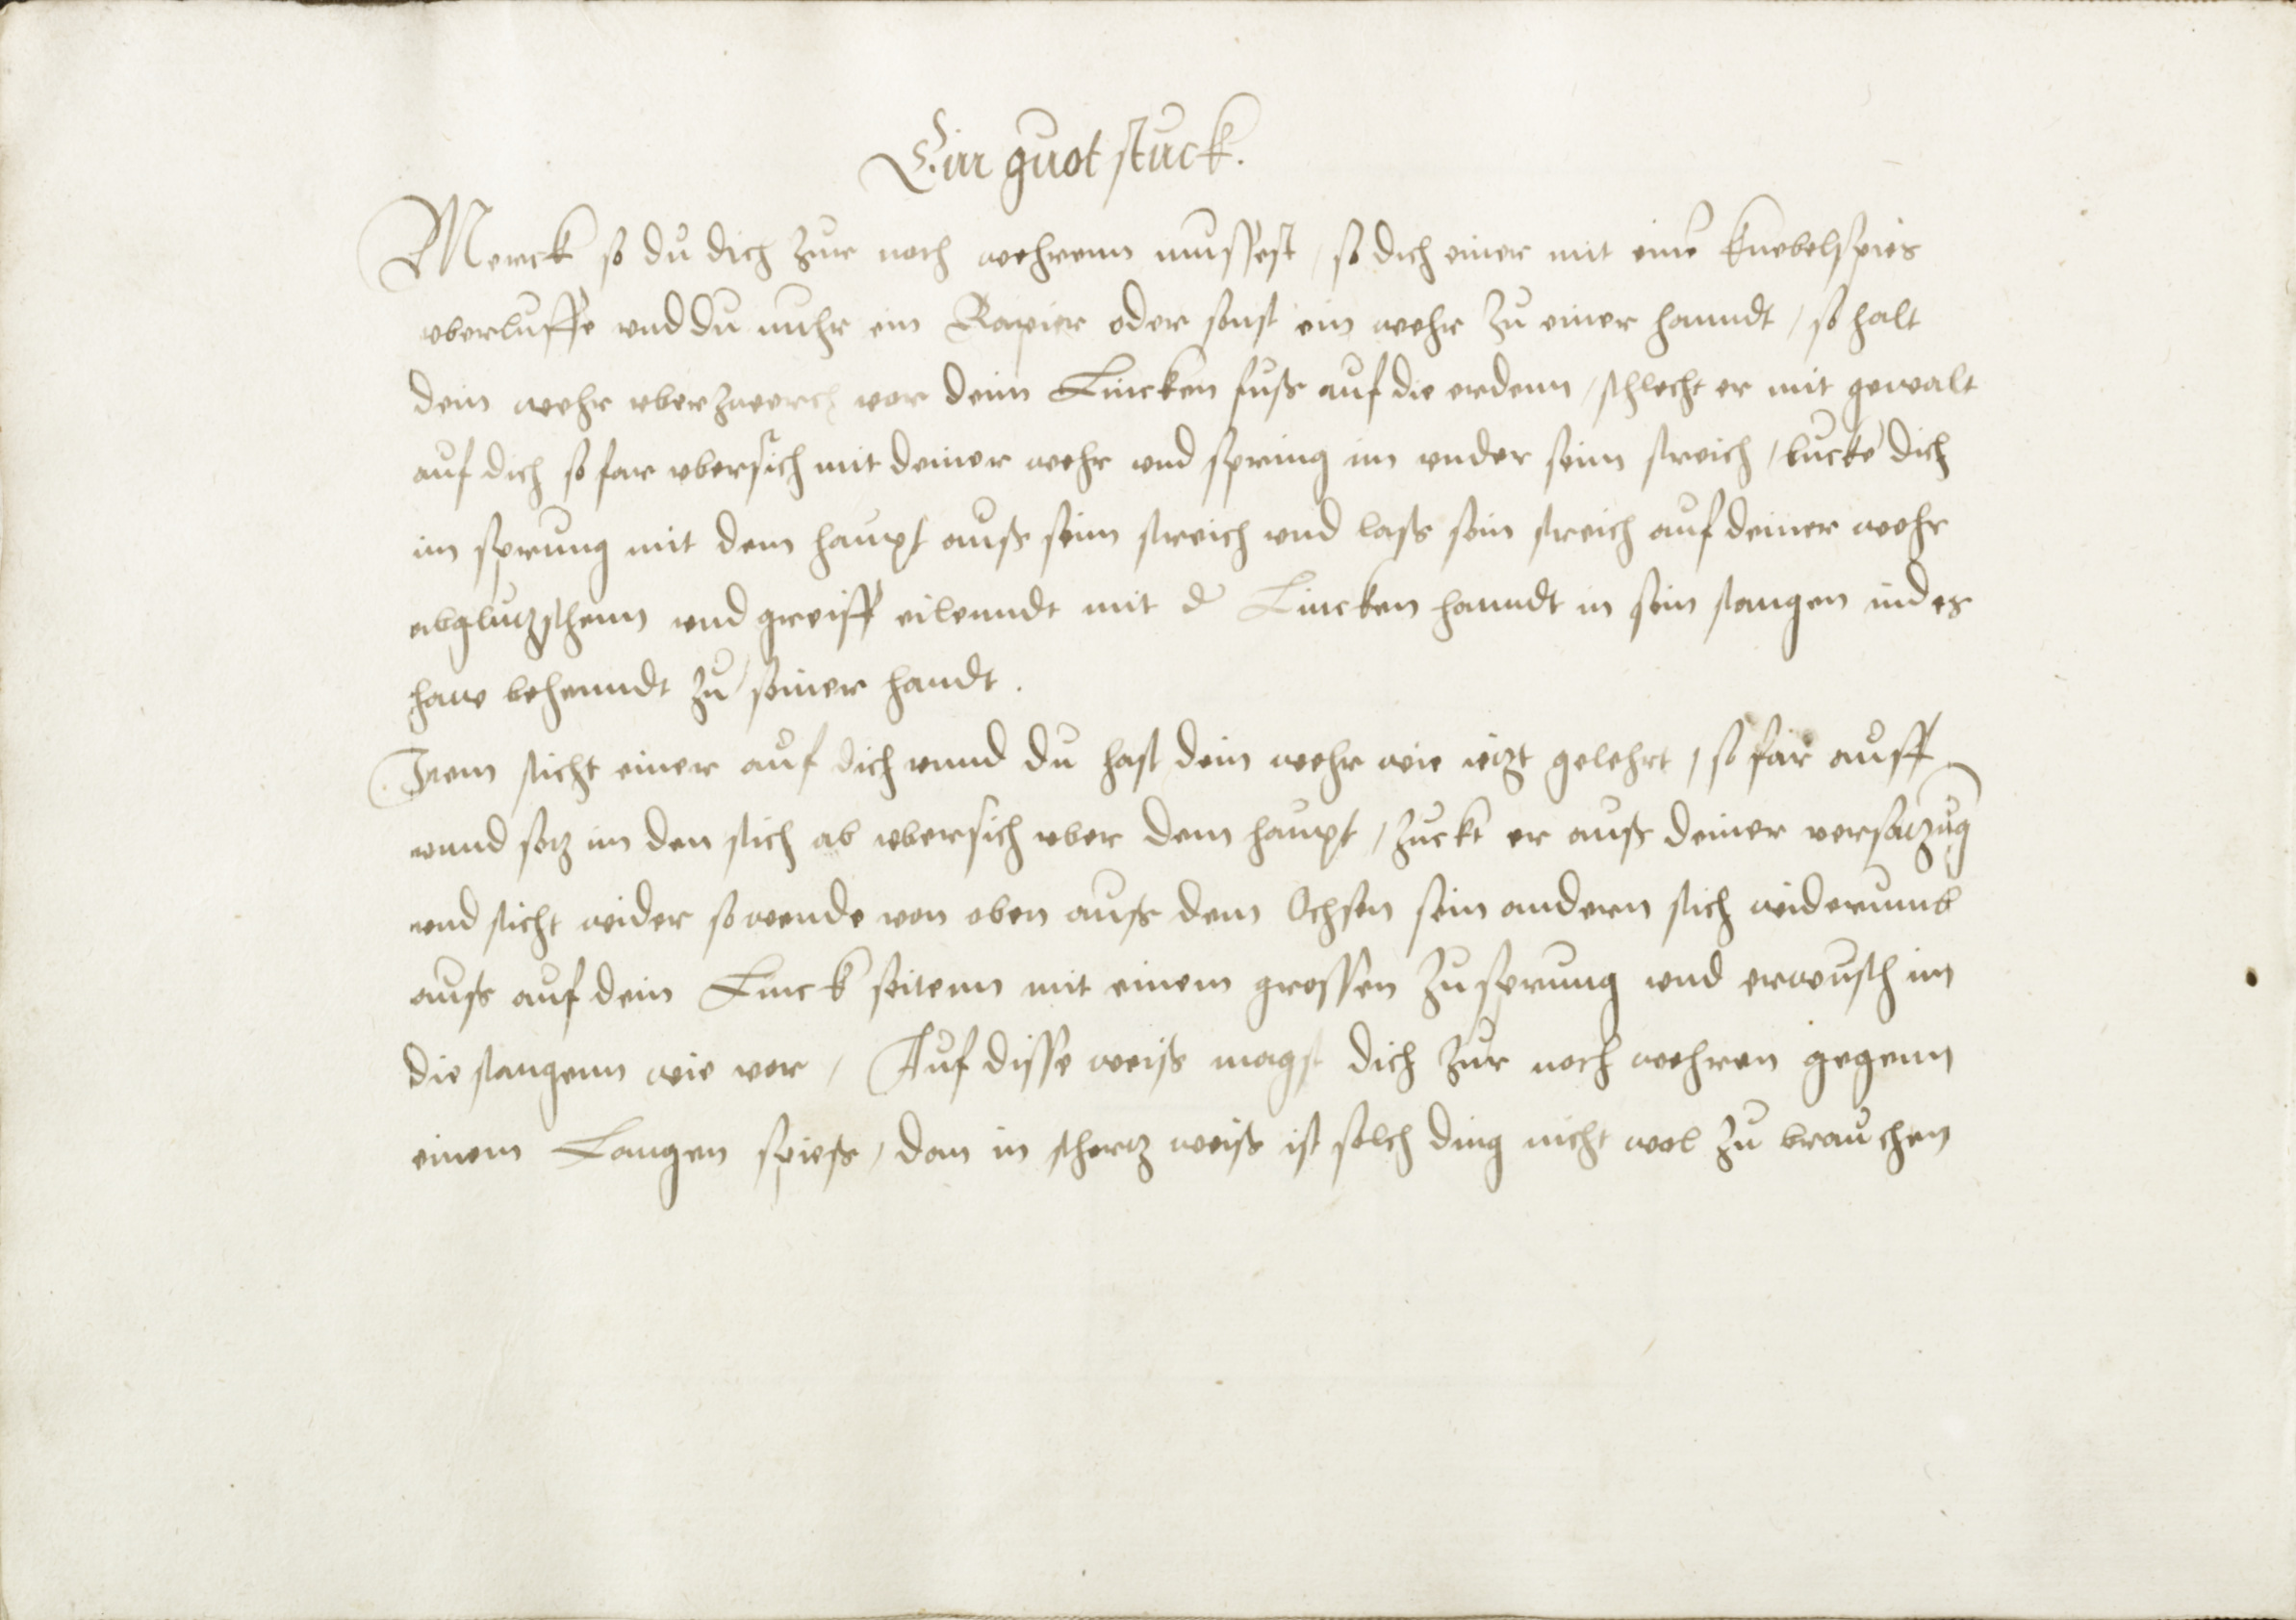 Ein guot stuck.
Merck so du dich zur noth wehrenn mussest / so dich einer mit eine knebelspies
vberluffe vnd du nuhr ein Rapier oder sonst ein wehr zu einer hanndt / so halt
dein wehr vberzwerch vor deim Lincken fuß auf die erdenn / schlecht er mit gewalt
auf dich so far vbersich mit deiner wehr vnd spring im vnder seim streich / bucke dich
im sprung mit dem haupt auß seim streich vnd lass sein streich auf deiner wehr
abglutzschenn vnd greiff eilenndt mit d Lincken hanndt in sein stangen indes
haw behenndt zu seiner handt.
Item sticht einer auf dich vnnd du hast dein wehr wie ietzt gelehrt / so far auff
vnnd setz im den stich ab vbersich vber dem haupt / zuckt er auß deiner versatzug
vnd sticht wider so wende von oben auß dem Ochsen sein andern stich widerumb
auß auf dein Linck seitenn mit einem grossen zusprung vnd erwusch im
die stangenn wie vor / Auf disse weiß magst dich zur noth wehren gegenn
einem Langen spieß / dan in schertz weiß ist solch ding nicht wol zu brauchen